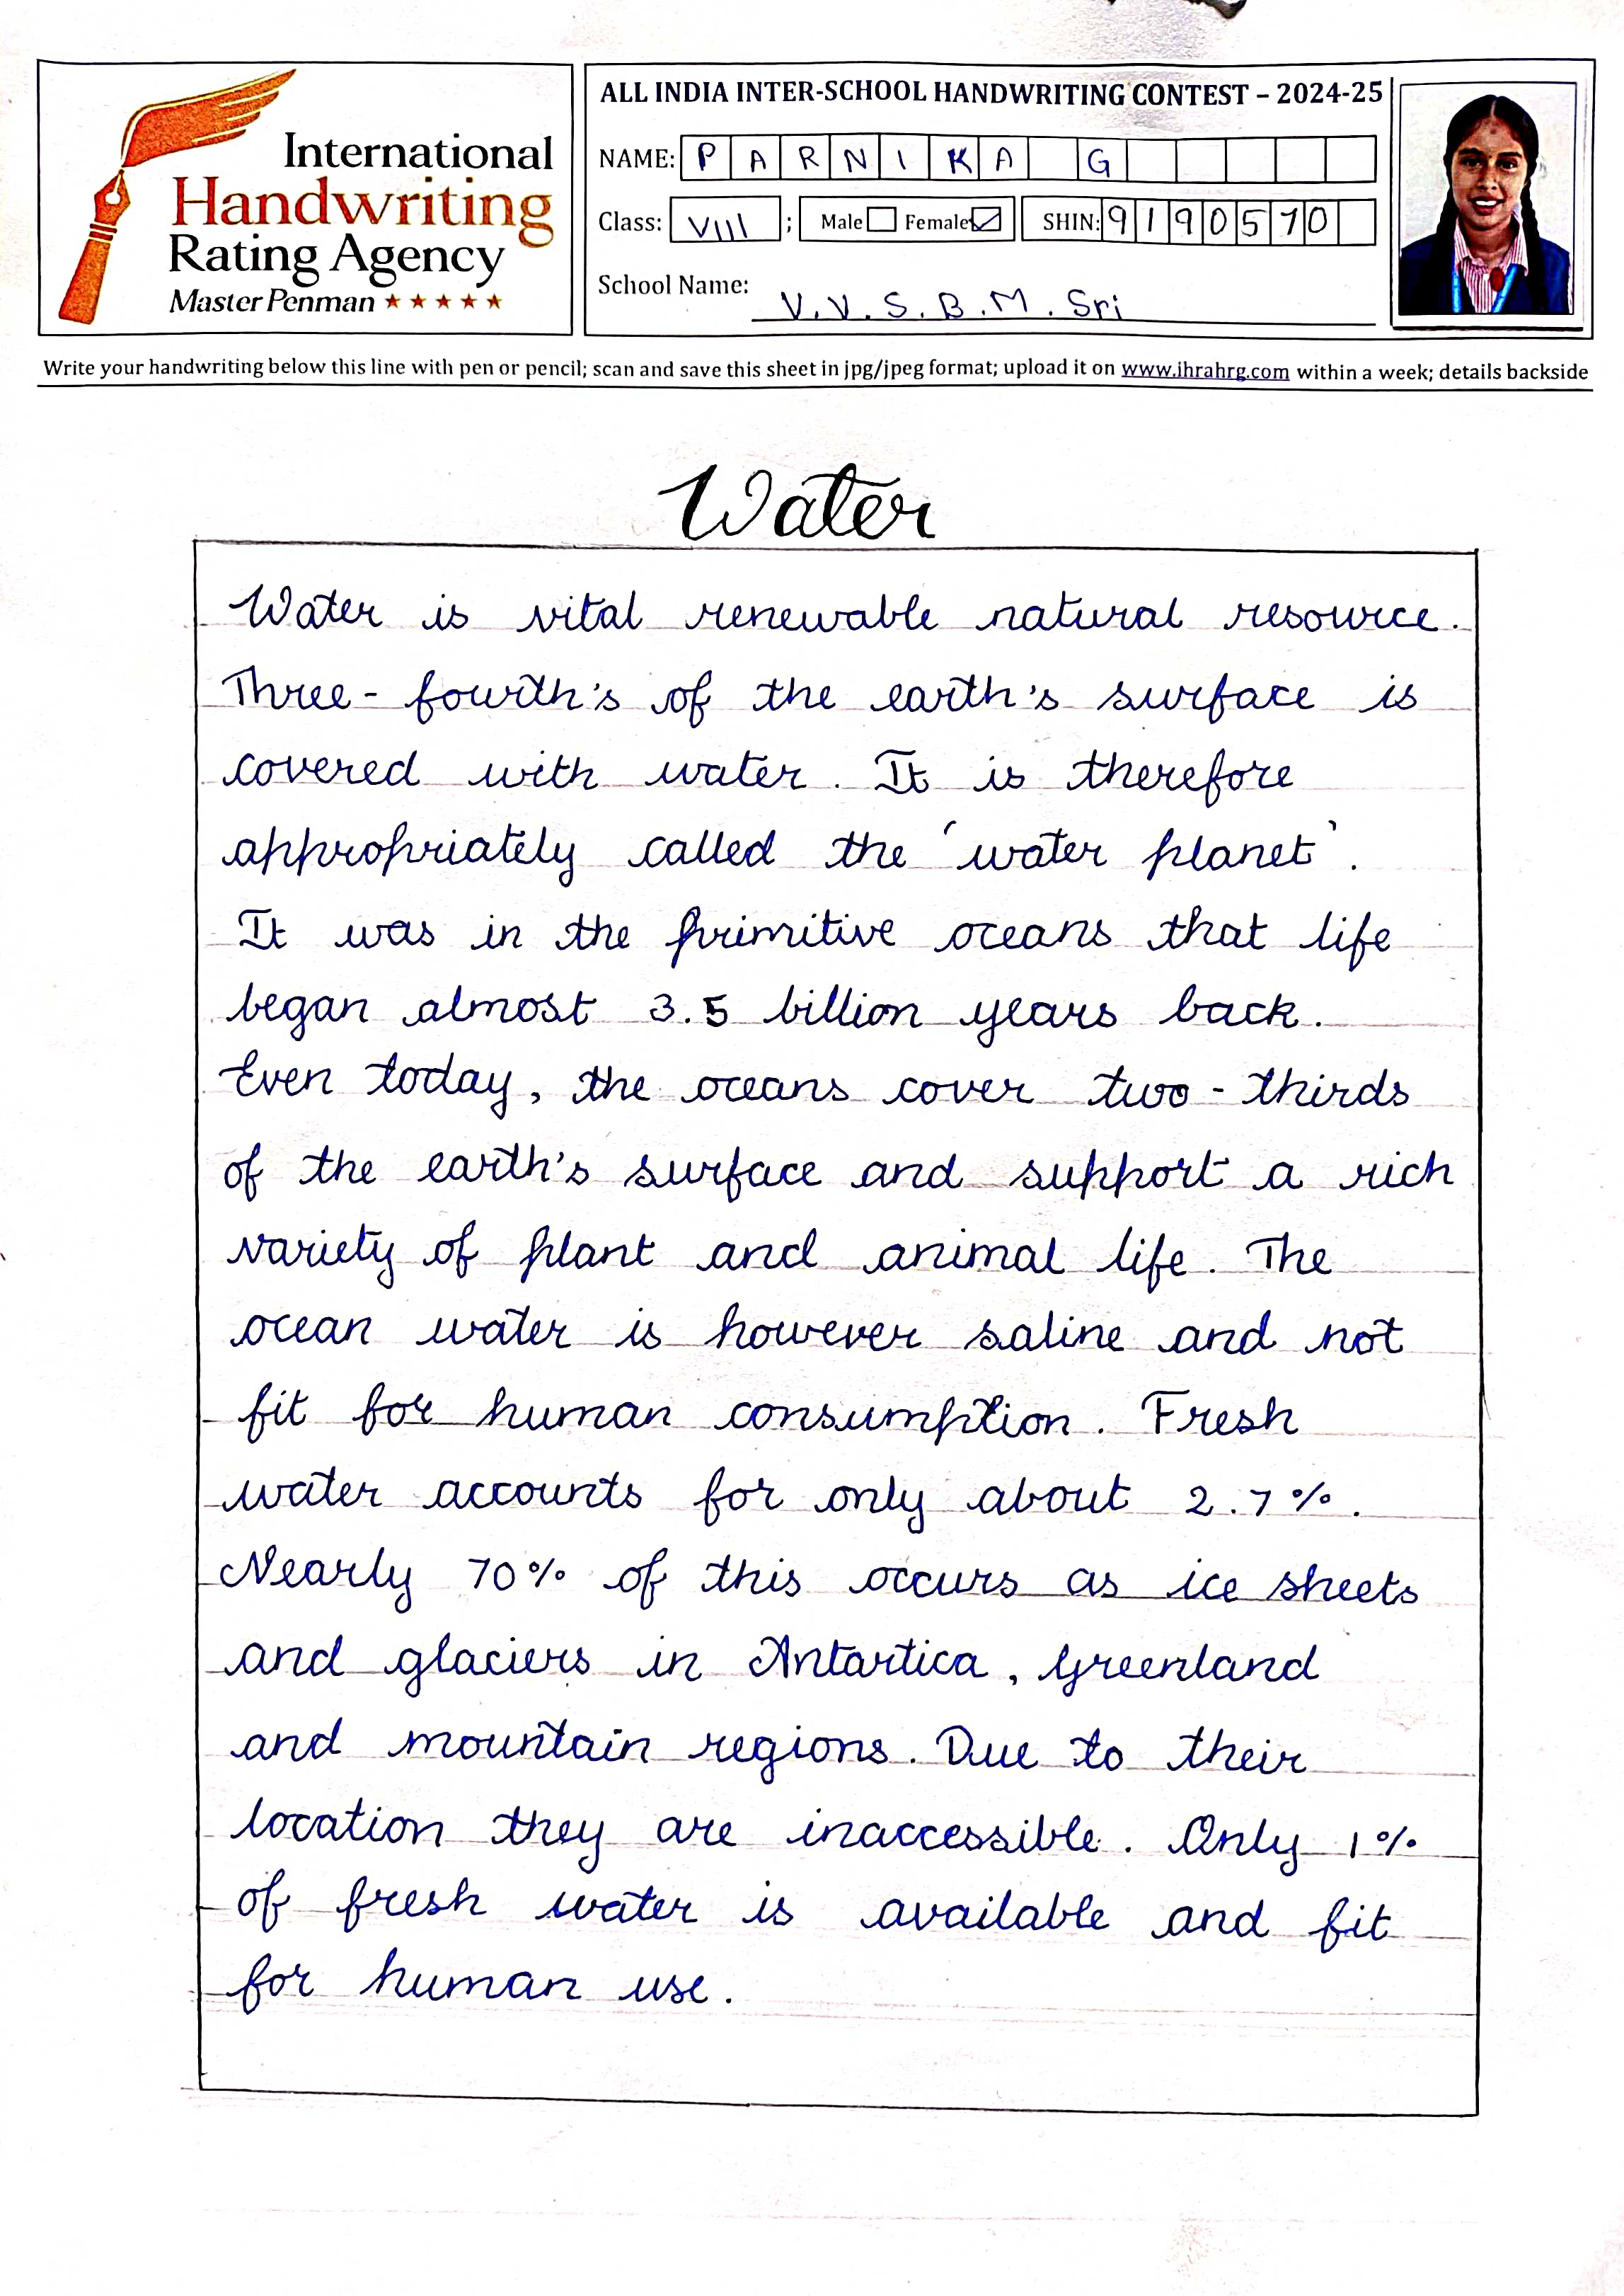 International
Handwriting
Rating Agency
Master Penman ★★★★★
ALL INDIA INTER-SCHOOL HANDWRITING CONTEST – 2024-25
NAME: PARNIKA G
Class: VIII ; Male Female SHIN: 9190570
School Name: V.V.S.B.M.Sri
Write your handwriting below this line with pen or pencil; scan and save this sheet in jpg/jpeg format; upload it on www.ihrahrg.com within a week; details backside
Water
Water is vital renewable natural resource.
Three-fourth's of the earth's surface is
covered with water. It is therefore
appropriately called the 'water planet'.
It was in the primitive oceans that life
began almost 3.5 billion years back.
Even today, the oceans cover two-thirds
of the earth's surface and support a rich
variety of plant and animal life. The
ocean water is however saline and not
fit for human consumption. Fresh
water accounts for only about 2.7%.
Nearly 70% of this occurs as ice sheets
and glaciers in Antartica, Greenland
and mountain regions. Due to their
location they are inaccessible. Only 1%
of fresh water is available and fit
for human use.